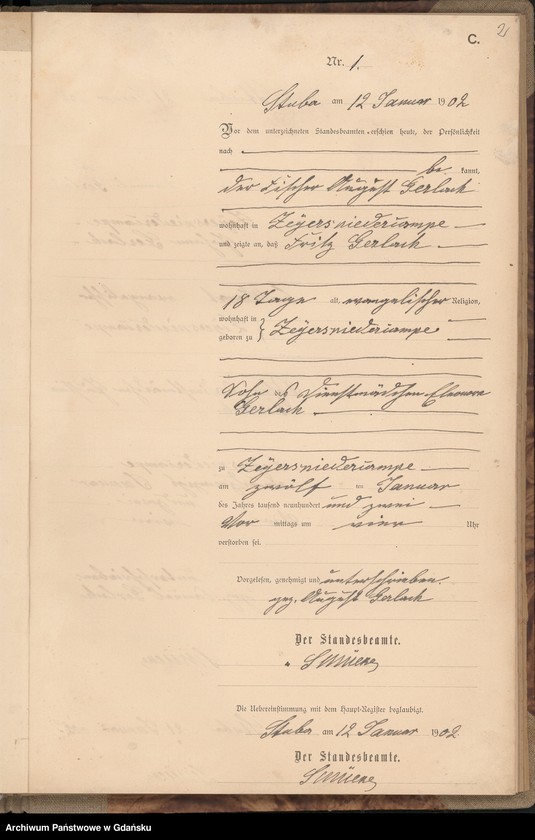 21
C.
Nr. 1.
Stuba am 12 Januar 1902
Vor dem unterzeichneten Standesbeamten erschien heute, der Persönlichkeit
nach
be kannt,
der Fischer August Gerlach
wohnhaft in Zeyersniedercampe
und zeigte an, daß Fritz Gerlach
18 Tage alt, evangelischer Religion,
wohnhaft in
geboren zu } Zeyersniedercampe
Sohn des Dienstmädchen Eleonore
Gerlach
zu Zeyersniedercampe
am zwölf ten Januar
des Jahres tausend neunhundert und zwei
Vor mittags um vier Uhr
verstorben sei.
Vorgelesen, genehmigt und unterschrieben.
gez. August Gerlach
Der Standesbeamte.
Die Uebereinstimmung mit dem Haupt-Register beglaubigt.
Stuba am 12 Januar 1902
Der Standesbeamte.
Archiwum Państwowe w Gdańsku